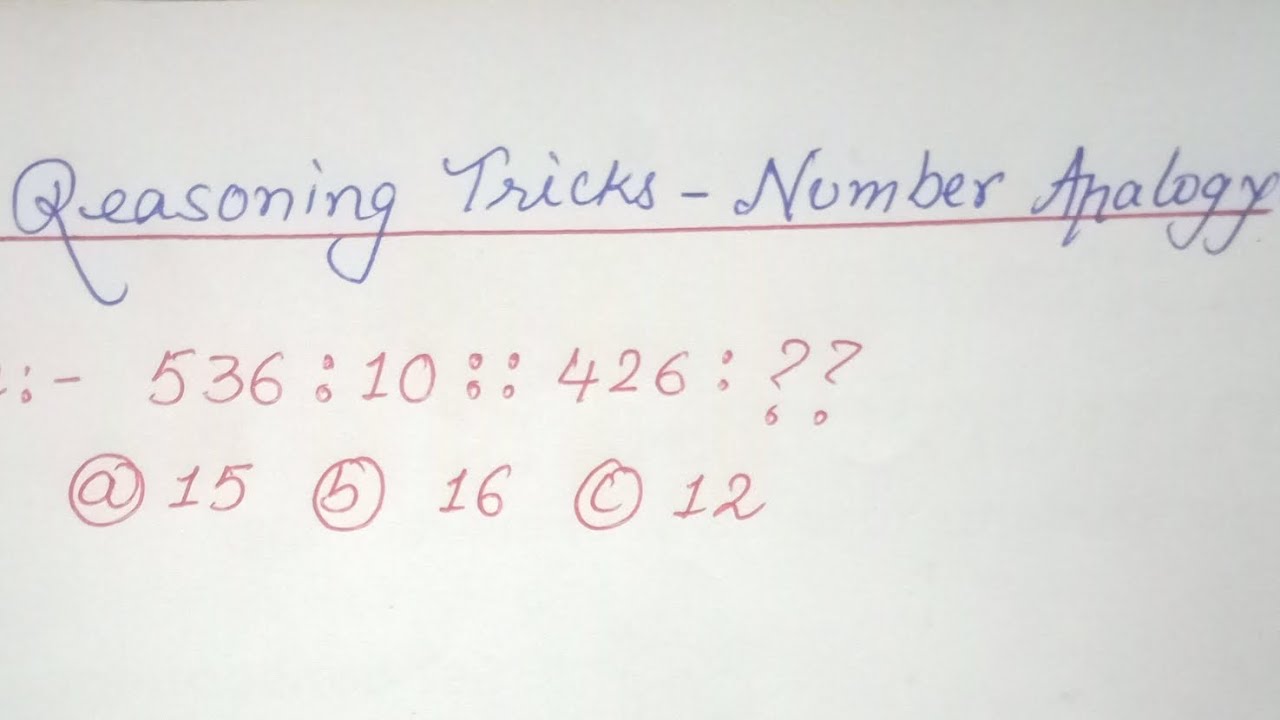 Reasoning Tricks - Number Analogy
:- 536 : 10 :: 426 : ??
(a) 15 (b) 16 (c) 12